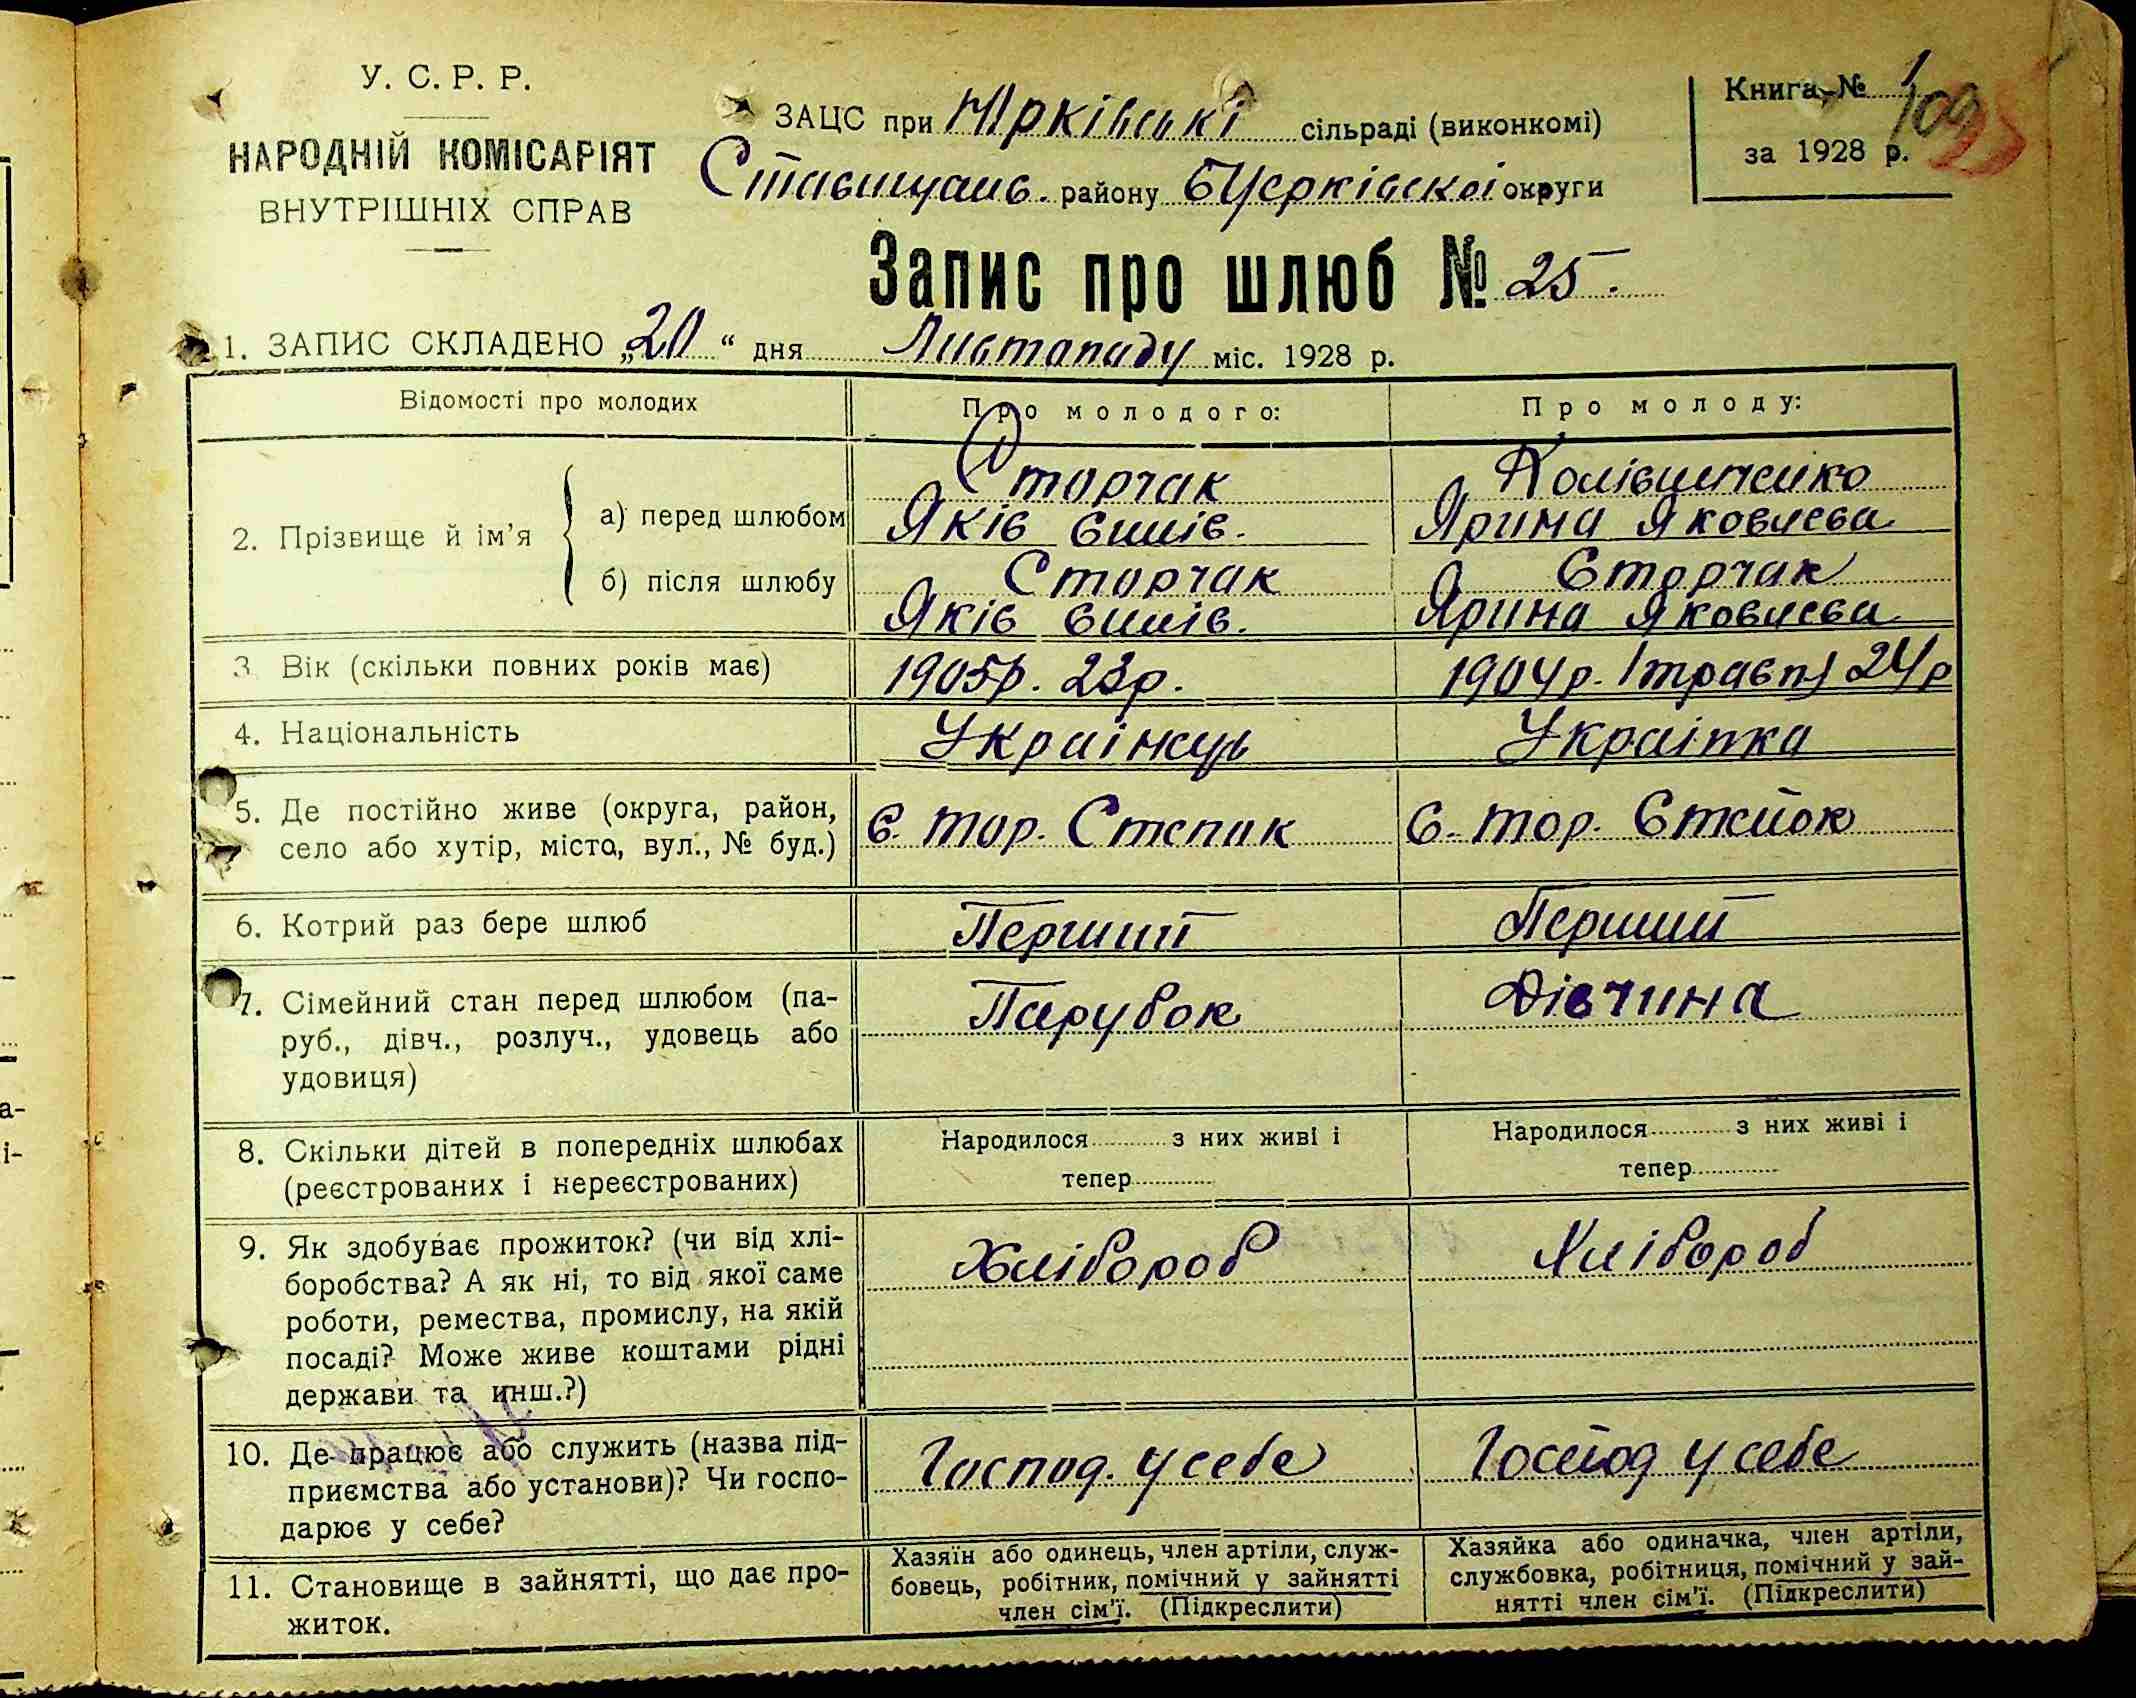 У. С. Р. Р.
НАРОДНІЙ КОМІСАРІЯТ
ВНУТРІШНІХ СПРАВ
ЗАЦС при Юрківські сільраді (виконкомі)
Ставищань. району БЦерківскоі округи
Книга № 1
за 1928 р.
Запис про шлюб № 25.
1. ЗАПИС СКЛАДЕНО „20“ дня Листопаду міс. 1928 р.
Відомості про молодих
Про молодого:
Про молоду:
2. Прізвище й ім'я
а) перед шлюбом
Сторчак
Яків
Ярина Яковлєва
б) після шлюбу
Сторчак
Яків
Сторчак
Ярина Яковлєва
3. Вік (скільки повних років має)
1905р. 23р.
1904р. /травн/ 24р
4. Національність
Украінець
Украінка
5. Де постійно живе (округа, район,
село або хутір, місто, вул., № буд.)
с. тор. Степок
с. тор. Степок
6. Котрий раз бере шлюб
Перший
Перший
7. Сімейний стан перед шлюбом (па-
руб., дівч., розлуч., удовець або
удовиця)
Парубок
Дівчина
8. Скільки дітей в попередніх шлюбах
(реєстрованих і нереєстрованих)
Народилося з них живі і
тепер
Народилося з них живі і
тепер
9. Як здобуває прожиток? (чи від хлі-
боробства? А як ні, то від якої саме
роботи, ремества, промислу, на якій
посаді? Може живе коштами рідні
держави та инш.?)
Хлібороб
Хлібороб
10. Де працює або служить (назва під-
приємства або установи)? Чи госпо-
дарює у себе?
Господ. у себе
Господ у себе
11. Становище в зайнятті, що дає про-
житок.
Хазяїн або одинець, член артіли, служ-
бовець, робітник, помічний у зайнятті
член сім'ї. (Підкреслити)
Хазяйка або одиначка, член артіли,
службовка, робітниця, помічний у зай-
нятті член сім'ї. (Підкреслити)